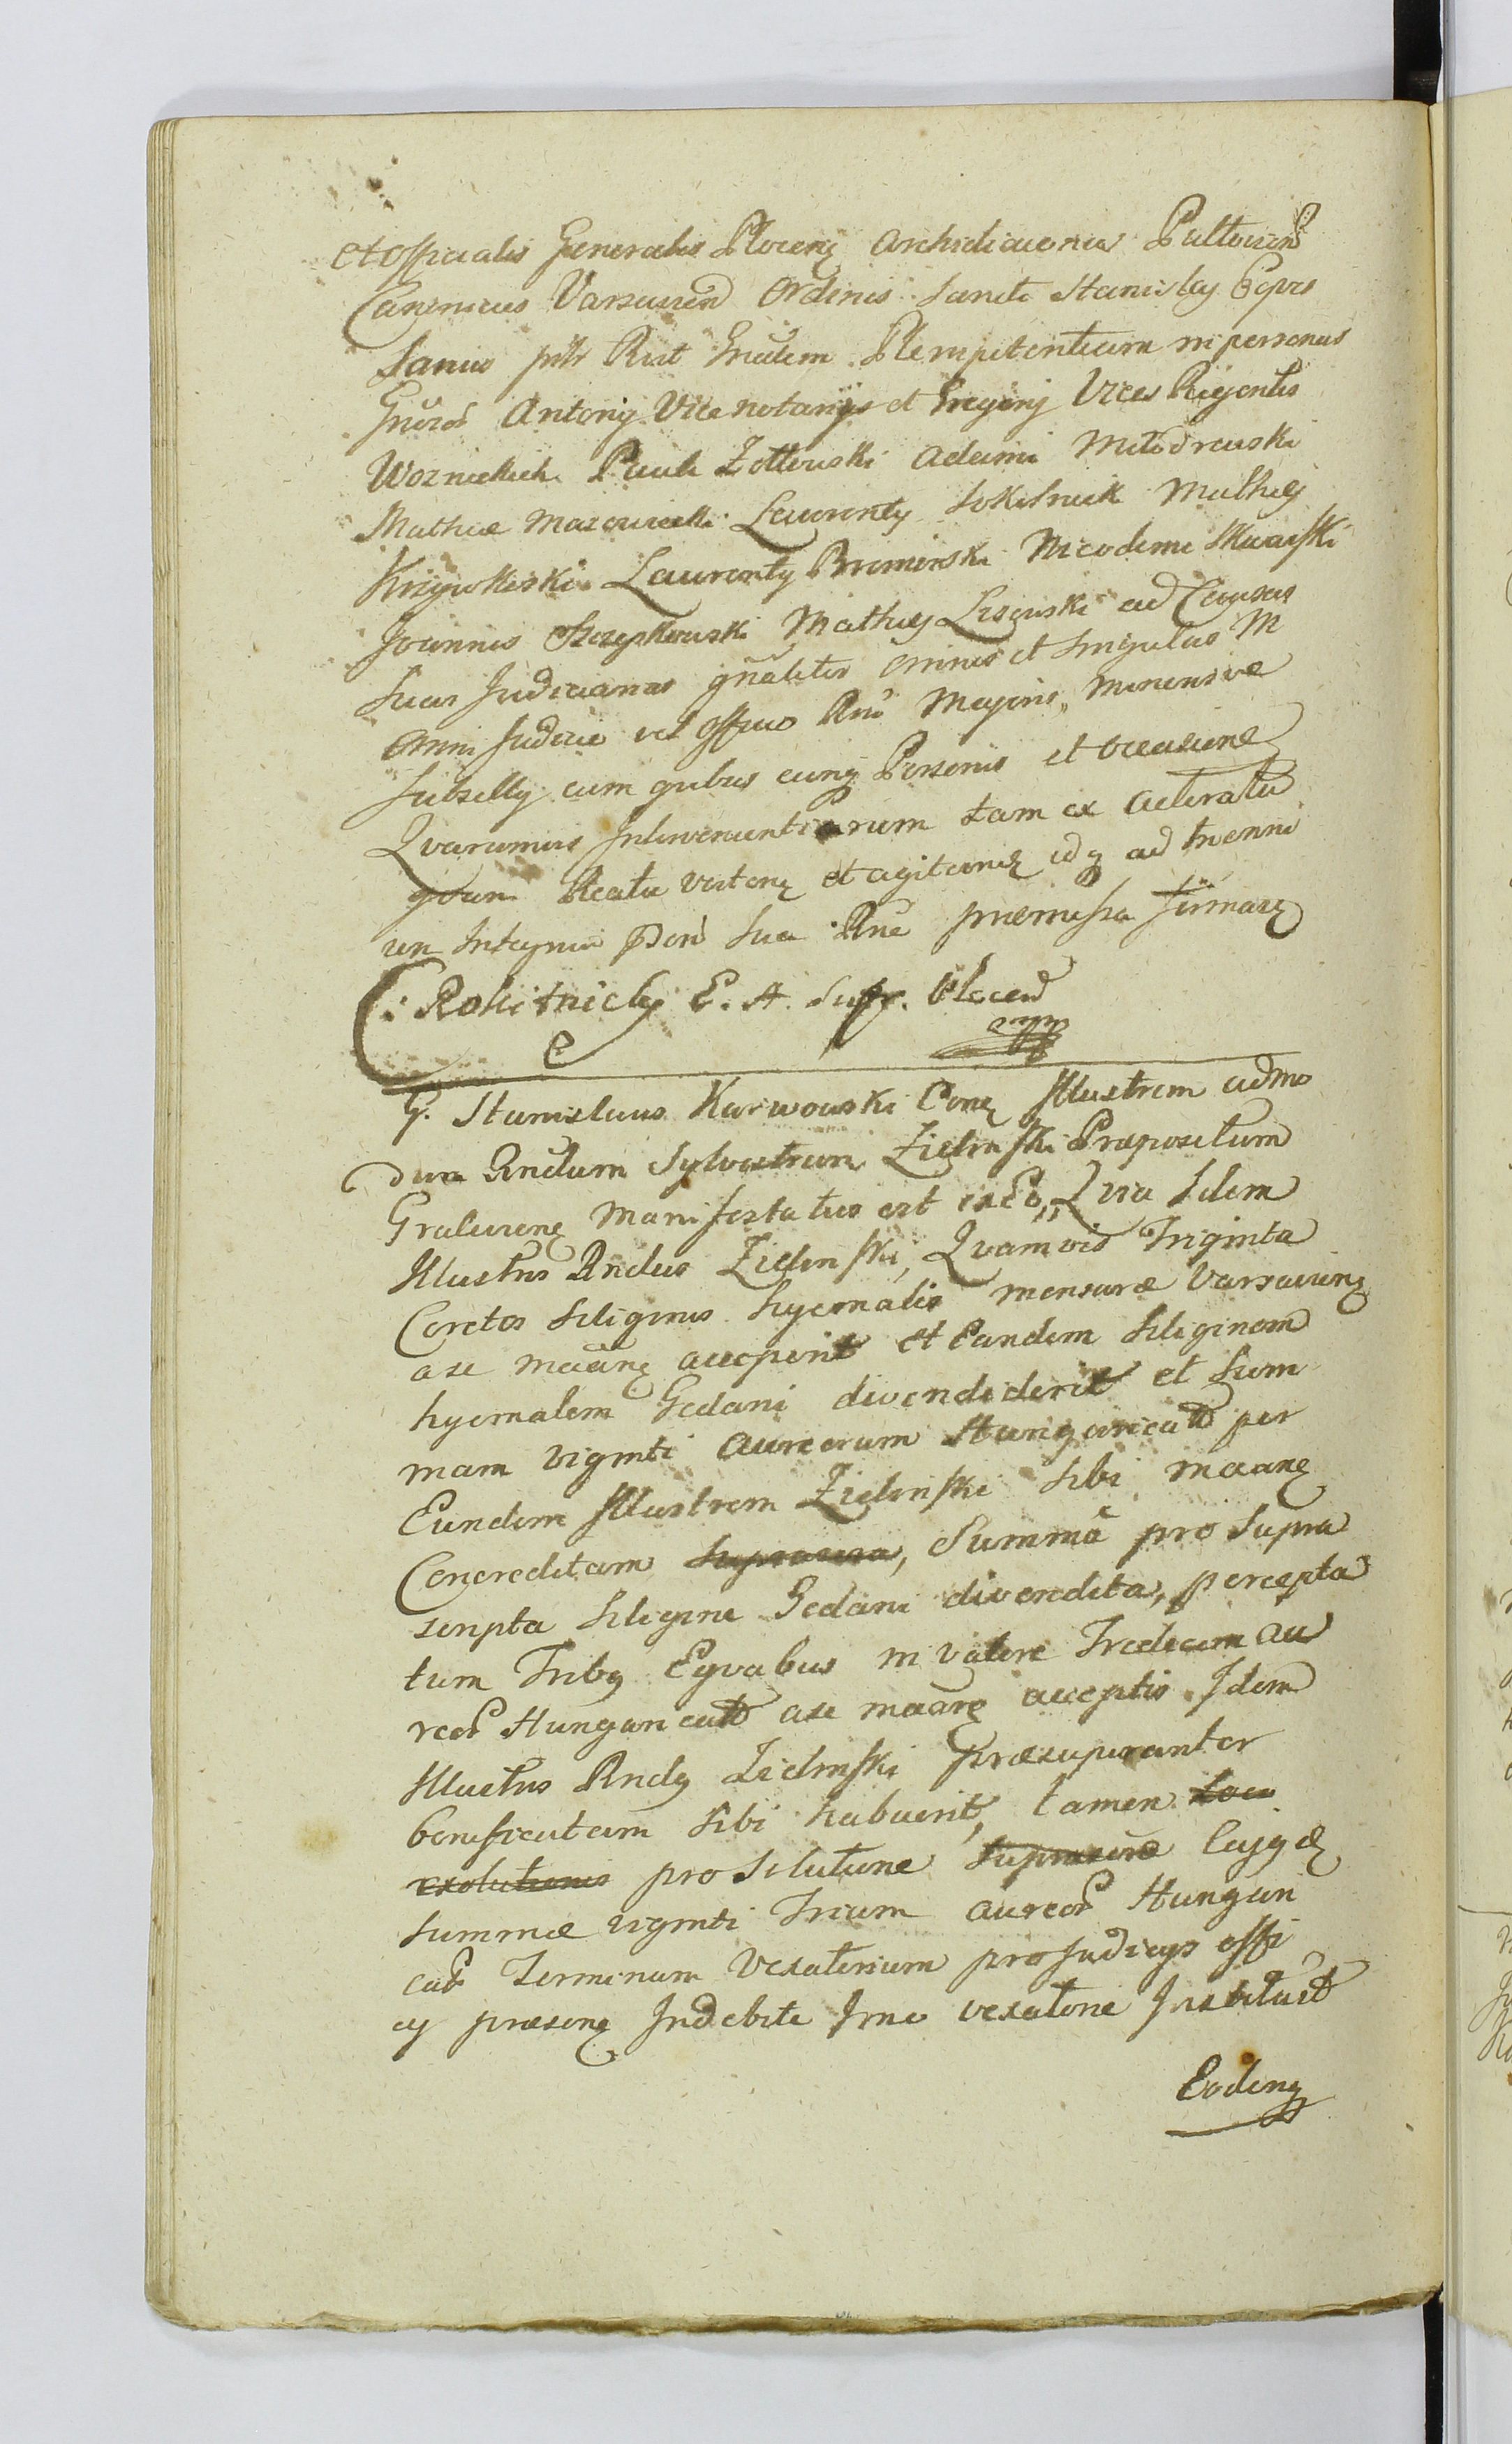 et Officialis Generalis Plocenę Archidiaconus Pultovien
Canonicus Varsavien Ordinis Sancti Stanislaj Eqves
Sanus pntr Rict Gnãlem Plenipotentiam in personas
Gnĩcor Antonij Vice notarijs et Gregorij Vices Regentis
Woznickich Pauli Zołtowski Adami Młodzewski
Mathiæ Mazowiecki Laurentÿ Sokolnick Mathej
Krzywkoski Laurentÿ Bromirski Nicodemi Skwarski
Joannis Szczepkowski Mathej Lisowski ad Causas
Suas Judiciarias gñaliter omnes et singulas in
omni Judicio vel Officio Rni Majoris, Minorisve
Subselly cum quibus cunq Personis et occasione
Qvarumvis Intervenientiarum tam ex Actoratu
qvam Reatu vertenę et agitanę idq ad trienni
um Integrum Pend Sua Rne præmissa firmarę
C: Rokitnicki E. A. Suffr. Plocen
G. Stanislaus Karwowski Conę Illustrem admo
dum Rndum Sylvestrum Zielinski Præpositum
Graluienę Manifestatus est in Eo, Qvia Idem
Illustris Rndus Zielinski, Qvamvis Triginta
Coretos Siliginis hyemalis mensuræ Varsavienę
a se maãnę acceperit et Eandem Siliginem
hyemalem Gedani divendiderit et Sum
mam viginti Aureorum Hungaricał per
Eundem Illustrem Zielinski Sibi maanę
Concreditam, Summã pro Supra
scripta Siligine Gedani divendita, percepta
tum Tribq Eqvabus in valore Tredecim Au
reor Hungaricał a se maanę acceptis Idem
Illustris Rndq Zielinski præsuperanter
bonificatam Sibi habuerit, tamen
exolutionis pro Solutione Cujqdę
Summæ viginti Trium Aureor Hungari
cał Terminum Vexatorium pro Judicijs offi
cij præsenę Indebite Imo vexatorie Instituit
Eodenę